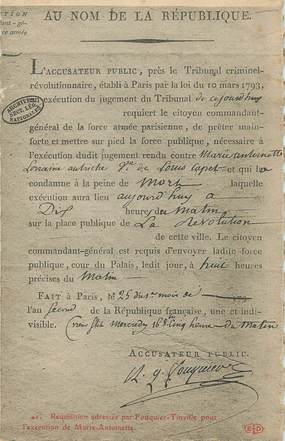 CTION
dant-gé-
ce armée
AU NOM DE LA RÉPUBLIQUE.
L'ACCUSATEUR PUBLIC, près le Tribunal criminel-
révolutionnaire, établi à Paris par la loi du 10 mars 1793,
en exécution du jugement du Tribunal de cejourd'huy
ARCHIVES
NATIONALES
requiert le citoyen commandant-
général de la force armée parisienne, de prêter main-
forte et mettre sur pied la force publique, nécessaire à
l'exécution dudit jugement rendu contre Marie antoinette
Loraine autriche Ve de Louis Capet et qui la
condamne à la peine de Mort laquelle
exécution aura lieu aujourd'huy a
Dix heures du Matin
sur la place publique de La Révolution
de cette ville. Le citoyen
commandant-général est requis d'envoyer ladite force
publique, cour du Palais, ledit jour, à huit heures
précises du Matin
FAIT à Paris, le 25 du 1er mois de
l'an second de la République française, une et in-
divisible. Mercredy 16 8bre Cinq heures du Matin
ACCUSATEUR PUBLIC.
A. q. Fouquier
Réquisition adressée par Fouquier-Tinville pour
l'exécution de Marie-Antoinette.
ED